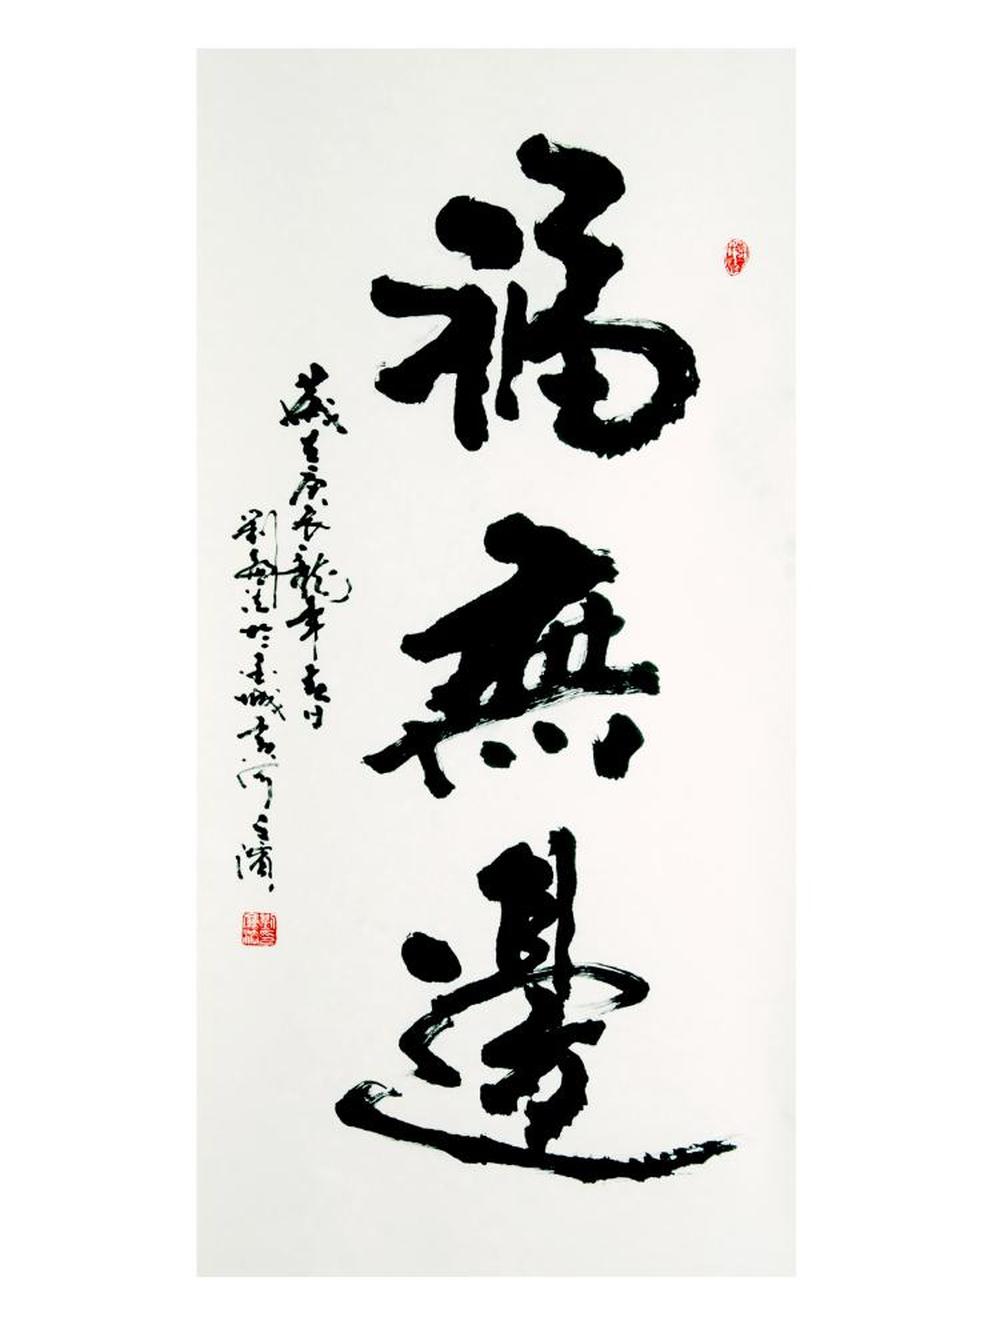 福無邊
歲在庚辰龍年春日
劉無法於金城黃河之濱